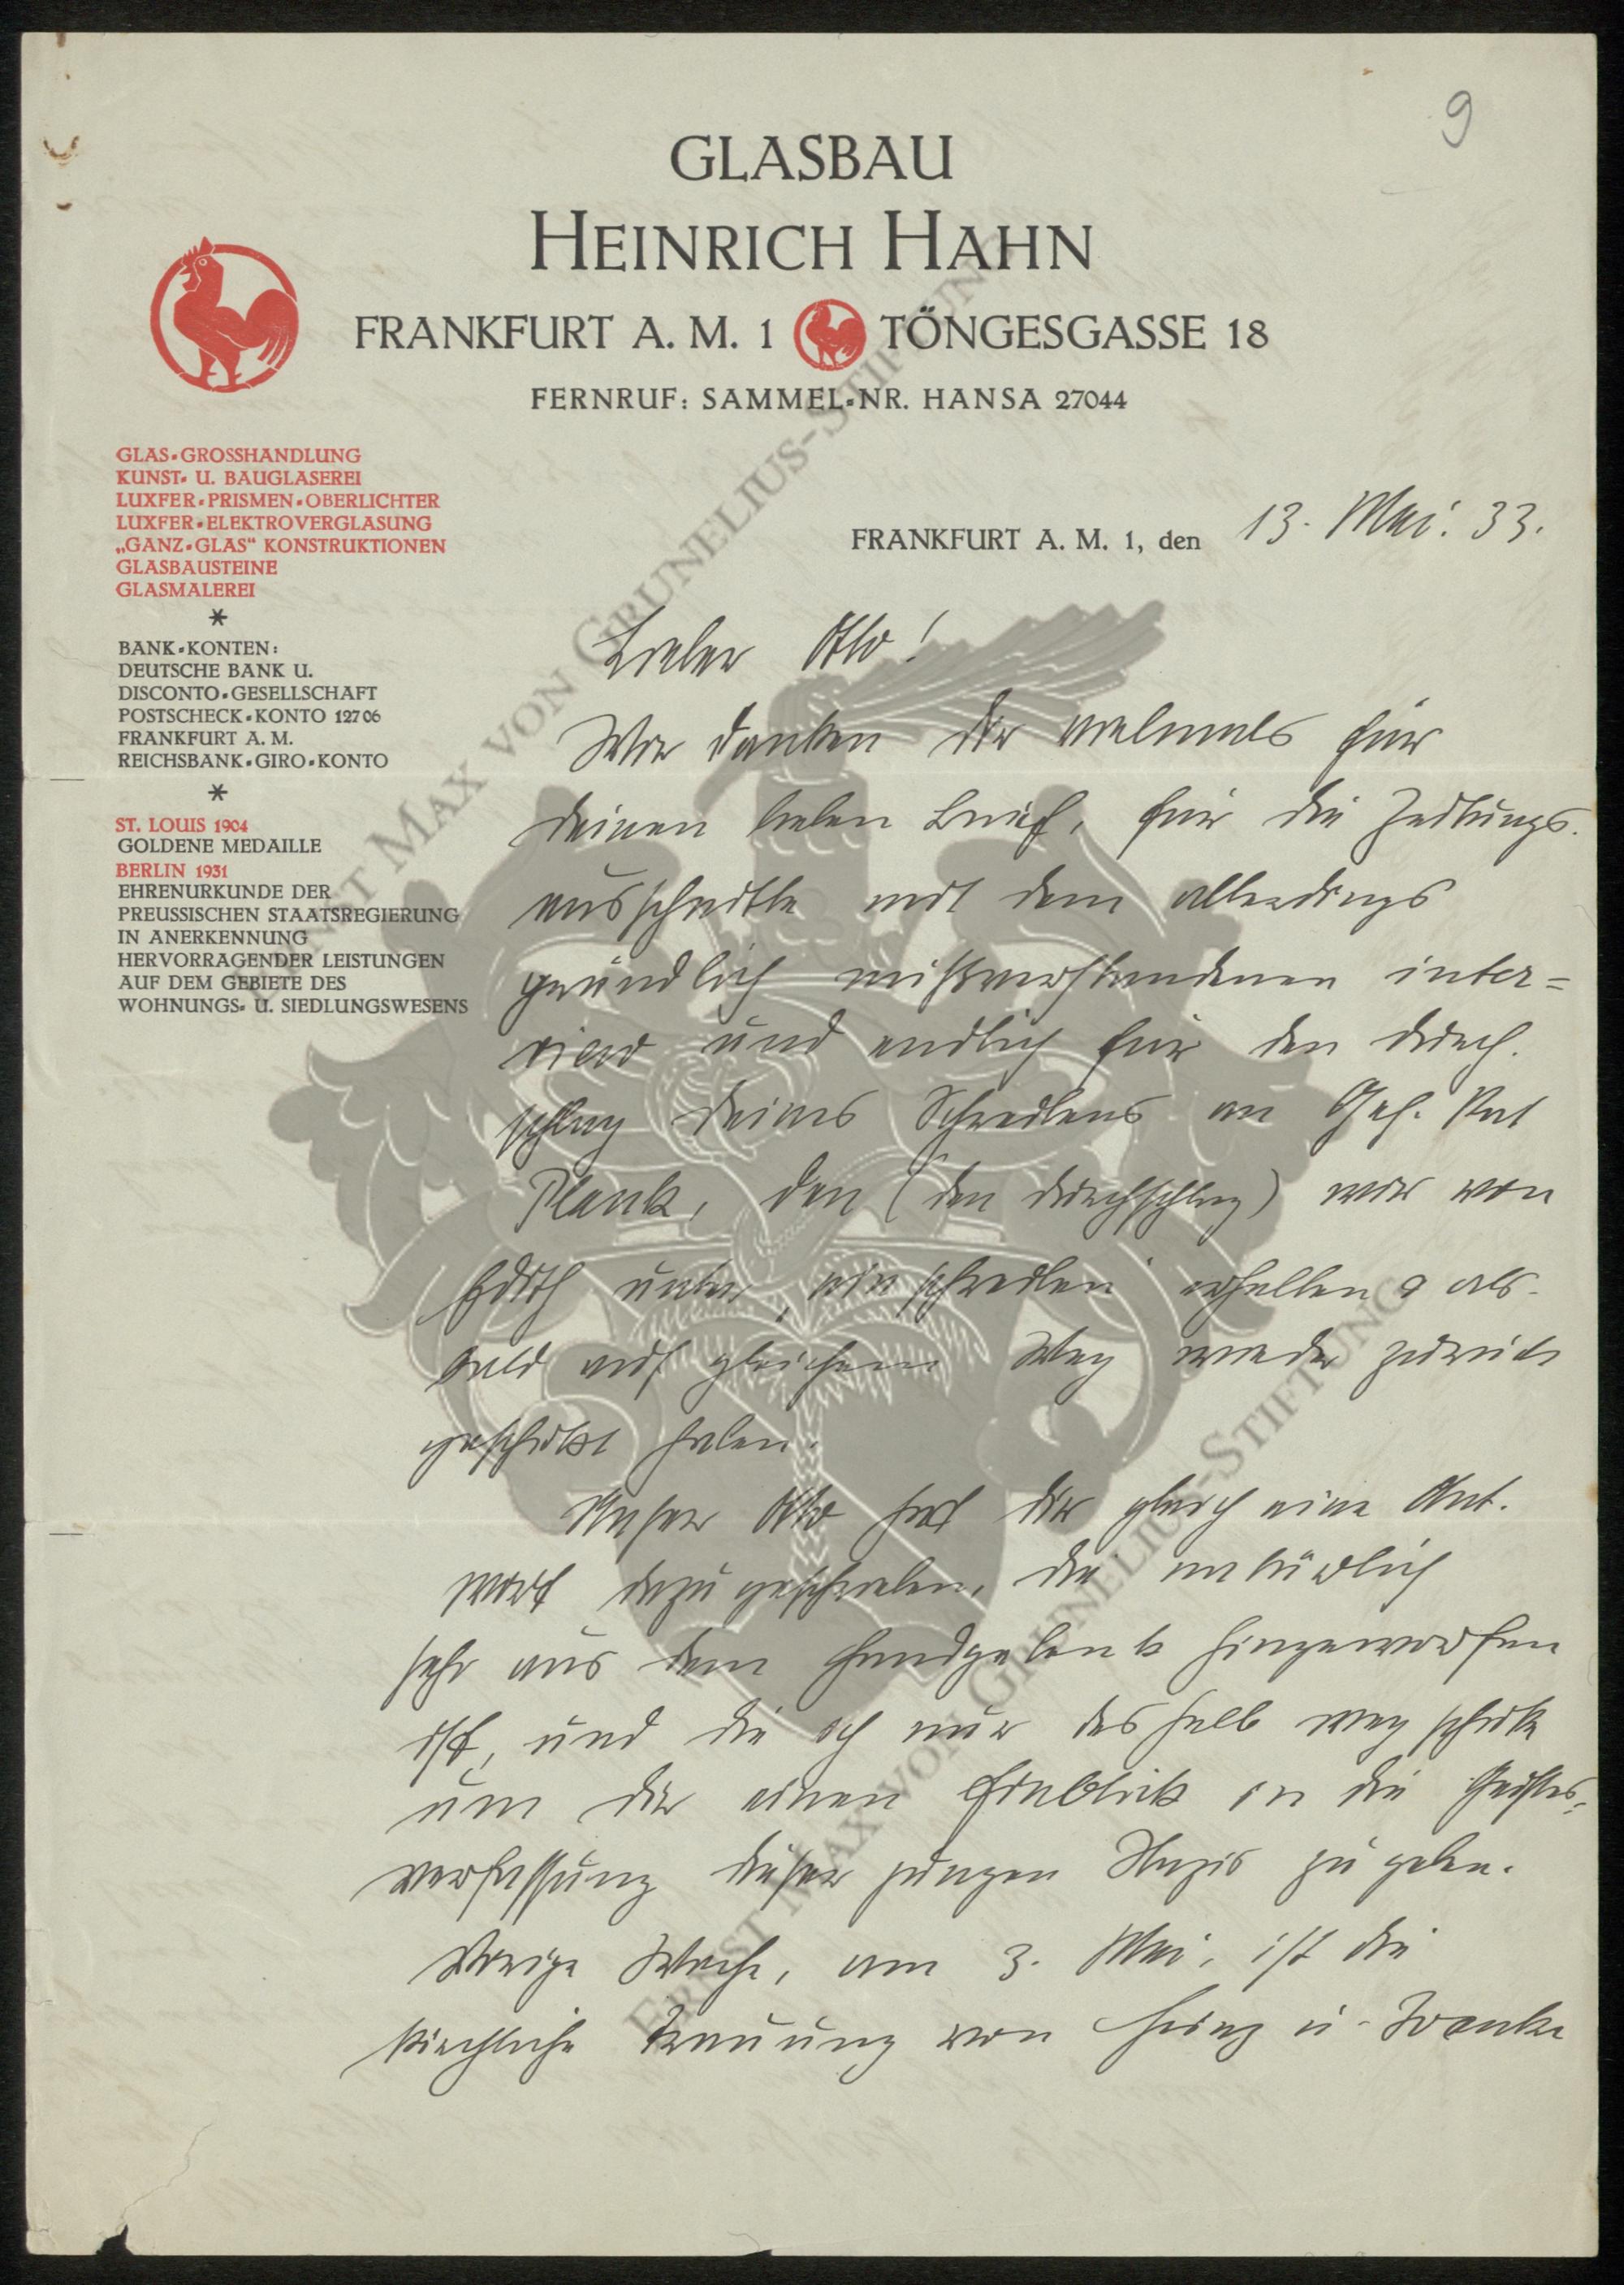 9
GLASBAU
HEINRICH HAHN
FRANKFURT A. M. 1 TÖNGESGASSE 18
FERNRUF: SAMMEL-NR. HANSA 27044
GLAS-GROSSHANDLUNG
KUNST- U. BAUGLASEREI
LUXFER-PRISMEN-OBERLICHTER
LUXFER-ELEKTROVERGLASUNG
„GANZ-GLAS“ KONSTRUKTIONEN
GLASBAUSTEINE
GLASMALEREI
*
BANK-KONTEN:
DEUTSCHE BANK U.
DISCONTO-GESELLSCHAFT
POSTSCHECK-KONTO 12706
FRANKFURT A. M.
REICHSBANK-GIRO-KONTO
*
ST. LOUIS 1904
GOLDENE MEDAILLE
BERLIN 1931
EHRENURKUNDE DER
PREUSSISCHEN STAATSREGIERUNG
IN ANERKENNUNG
HERVORRAGENDER LEISTUNGEN
AUF DEM GEBIETE DES
WOHNUNGS- U. SIEDLUNGSWESENS
FRANKFURT A. M. 1, den 13. Mai. 33.
Lieber Otto!
Wir danken dir vielmals für
deinen lieben Brief, für die Zeitungs-
ausschnitte mit dem allerdings
gründlich mißverstandenen inter=
view und endlich für den Durch-
schlag deines Schreibens an Geh. Rat
Plank, den (den Durchschlag) wir von
Edith unter „einschreiben“ erhalten & als-
bald auf gleichem Weg wieder zurück
geschickt haben.
Unser Otto hat dir gleich eine Ant-
wort dazu geschrieben, die natürlich
sehr aus dem Handgelenk hingeworfen
ist, und die ich nur deshalb wegschicke
um dir einen Einblick in die Geistes-
verfassung dieser jungen Nazis zu geben.
Vorige Woche, am 3. Mai, ist die
kirchliche Trauung von Heinz u.
ERNST MAX VON GRUNELIUS-STIFTUNG
ERNST MAX VON GRUNELIUS-STIFTUNG